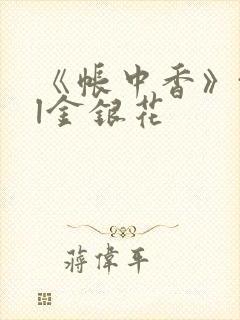 《帐中香》
|金银花
蒋伟平